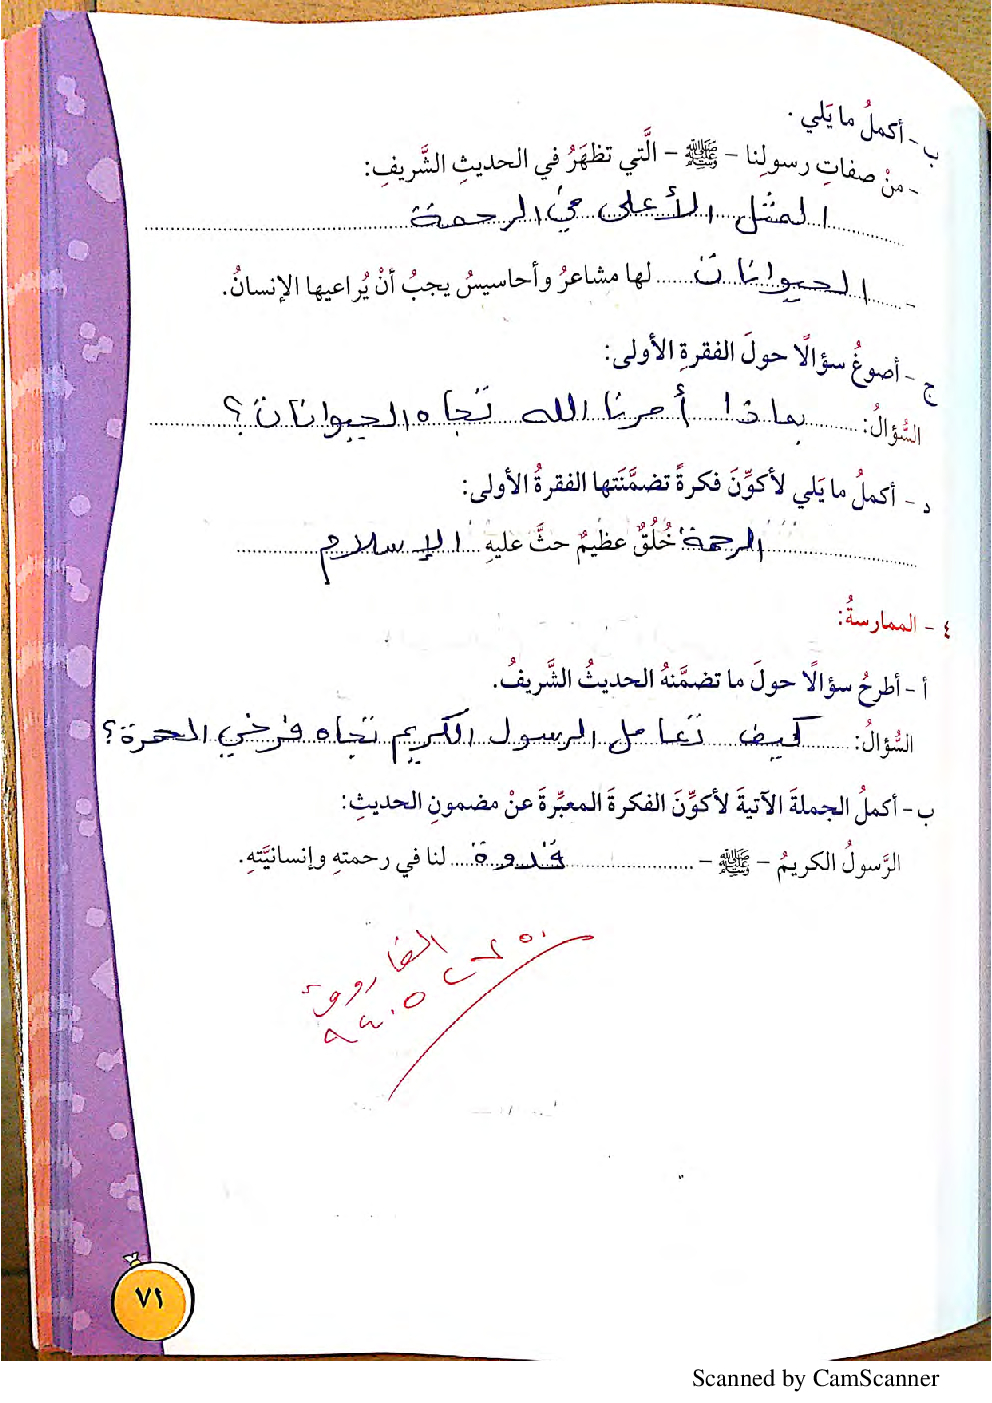 ب - أكملُ ما يَلي .
- منْ صفاتِ رسولِنا - ﷺ - الَّتي تظهَرُ في الحديثِ الشَّريفِ:
المثل الأعلى في الرحمة
- الحيوانات لها مشاعرُ وأحاسيسُ يجبُ أنْ يُراعيها الإنسانُ.
ج - أصوغُ سؤالًا حولَ الفقرةِ الأولى:
السُّؤالُ: بماذا أمرنا الله تجاه الحيوانات ؟
د - أكملُ ما يَلي لأكوِّنَ فكرةً تضمَّنَتها الفقرةُ الأولى:
الرحمة خُلُقٌ عظيمٌ حثَّ عليهِ الإسلام
٤ - الممارسةُ:
أ - أطرحُ سؤالًا حولَ ما تضمَّنهُ الحديثُ الشَّريفُ.
السُّؤالُ: كيف تعامل الرسول الكريم تجاه فرخي الحمرة ؟
ب - أكملُ الجملةَ الآتيةَ لأكوِّنَ الفكرةَ المعبِّرةَ عنْ مضمونِ الحديثِ:
الرَّسولُ الكريمُ - ﷺ - قدوة لنا في رحمتهِ وإنسانيَّتهِ.
٧١
Scanned by CamScanner